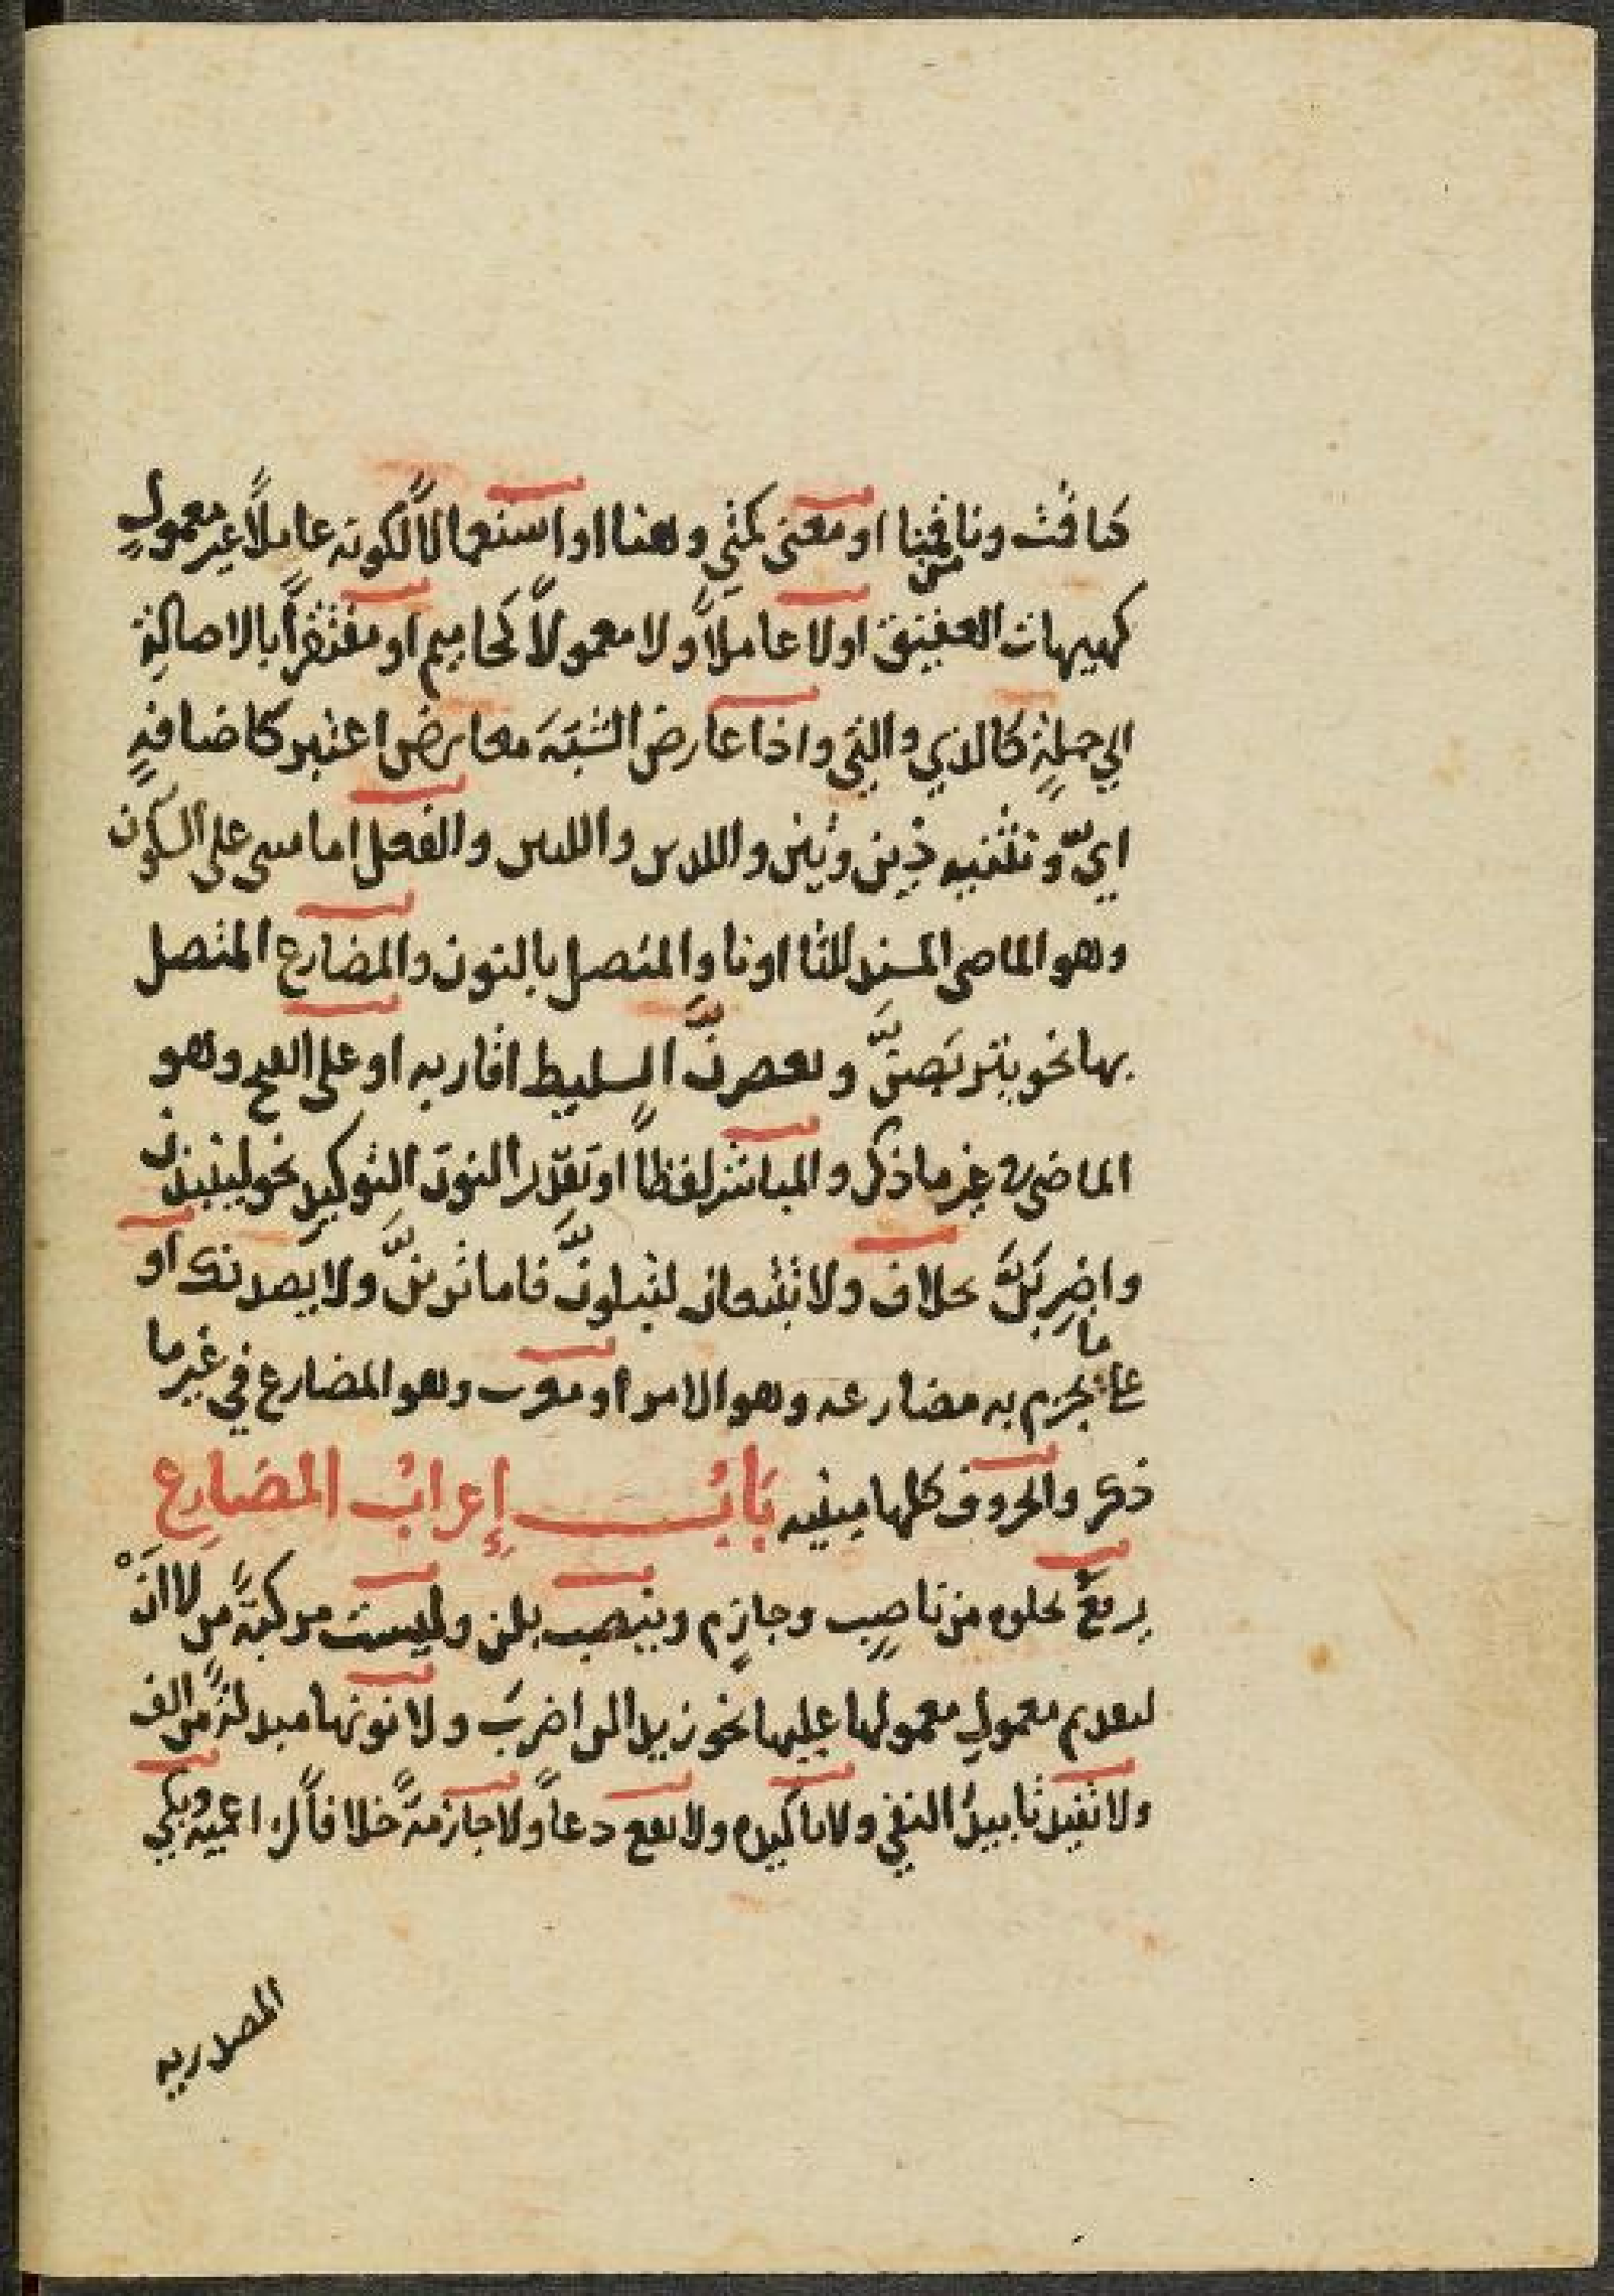 كتا قمت ونا قمنا او معنى كمتى وهنا او استعمالاً لكونه عاملاً غير معمولٍ
كهيهات العقيق او لا عاملاً ولا معمولاً كحاميم او مفتقراً بالاصالةِ
الى جملةٍ كالذي والتي واذا عارض الشبهَ معارض اعتبر كاضافةِ
ايٍّ وتثنيه ذين وتين واللذين واللتين والفعل اما مبنى على السكون
وهو الماضي المسند للتا او نا والمتصل بالنون والمضارع المتصل
بها نحو يتربَّصنَّ و يعصرنَّ السليط اقاربه او على الفتح وهو
الماضي في غير ما ذكر والمباشر لفظاً او تقديرا لنون التوكيد نحو لينبذن
واضربَنَّ بخلاف ولا تتبعان لتبلونَّ فاما ترينَّ ولا يصدنك او
على ما يجزم به مضارعه وهو الامر او معرب وهو المضارع في غير ما
ذكر والحروف كلها مبنيه بَابُ إعرابُ المضَارِع
يرفعُ بخلوه من ناصِبٍ وجازِمٍ وينصب بلن وليست مركبةً من لا انْ
لتقديم معمولِ معمولها عليها نحو زيدا لن اضربَ ولا نونها مبدلةً من الف
ولا تفيد تابيدُ النفي ولا تاكيده ولا تقع دعاً ولا جازمةً خلافاً لزاعميه وبكي
المصدريه